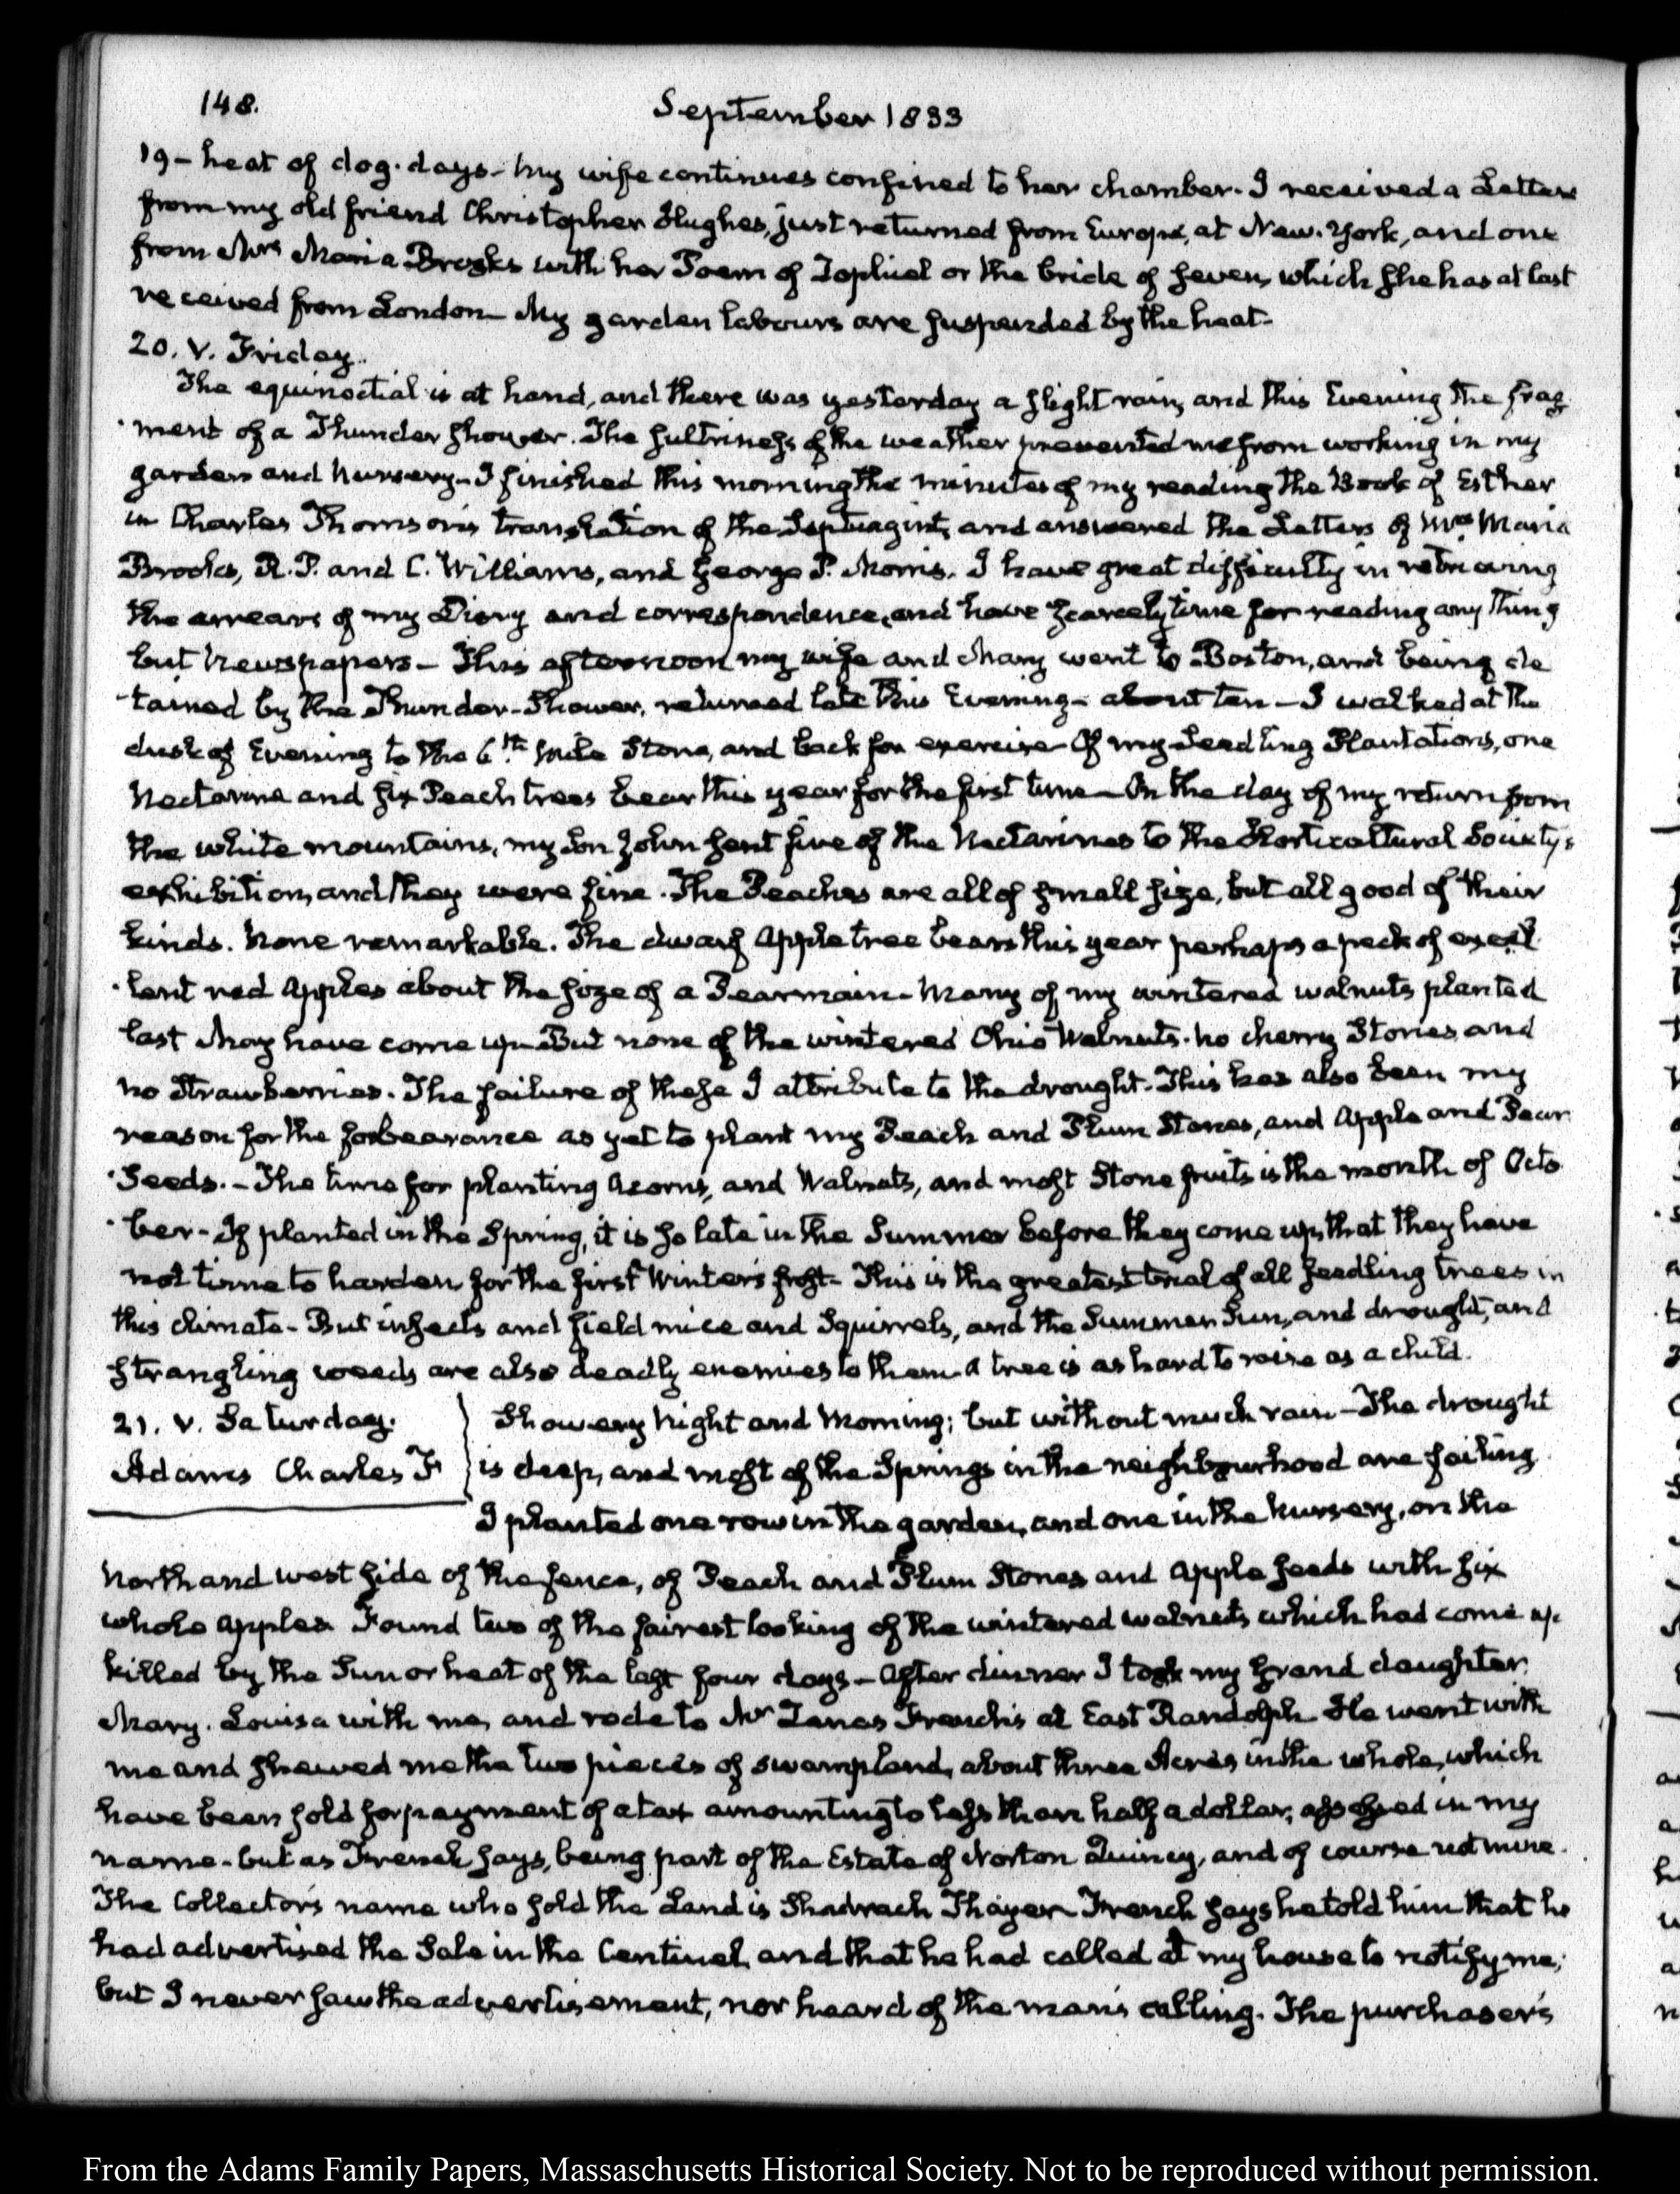 148.
September 1833
19 - heat of dog-days - My wife continues confined to her chamber. I received a Letter
from my old friend Christopher Hughes, just returned from Europe, at New-York, and one
from Mrs Maria Brooks with her Poem of Zophiel or the bride of Seven, which she has at last
received from London - My garden labours are suspended by the heat.
20. V. Friday.
The equinoctial is at hand, and there was yesterday a slight rain, and this Evening the frag
ment of a Thunder shower. The sultriness of the weather prevented me from working in my
garden and nursery - I finished this morning the minutes of my reading the Book of Esther
in Charles Thomson's translation of the Septuagint, and answered the Letters of Mrs Maria
Brooks, R. P. and C. Williams, and George P. Morris. I have great difficulty in retrieving
the arrears of my Diary and correspondence, and have scarcely time for reading any thing
but Newspapers - This afternoon my wife and Mary went to Boston, and being de
tained by the Thunder-Shower, returned late this Evening - about ten - I walked at the
dusk of Evening to the 6th Mile Stone, and back for exercise. Of my Seedling Plantations, one
Nectarine and six Peach trees bear this year for the first time - On the day of my return from
the white mountains, my Son John sent five of the Nectarines to the Horticultural Society's
exhibition, and they were fine. The Peaches are all of small size, but all good of their
kinds. None remarkable. The dwarf Apple tree bears this year perhaps a peck of excel
lent red Apples about the size of a Pearmain - Many of my wintered walnuts planted
last May have come up - But none of the wintered Ohio Walnuts. no cherry Stones and
no Strawberries. The failure of these I attribute to the drought. This has also been my
reason for the forbearance as yet to plant my Peach and Plum Stones, and Apple and Pear
Seeds. - The time for planting Acorns, and Walnuts, and most Stone fruits is the month of Octo
ber - If planted in the Spring, it is so late in the Summer before they come up, that they have
not time to harden for the first Winter's frost - This is the greatest trial of all seedling trees in
this climate - But insects and field mice and Squirrels, and the Summer Sun, and drought, and
strangling weeds are also deadly enemies to them - A tree is as hard to raise as a child.
21. V. Saturday.
Adams Charles F
Showery Night and Morning; but without much rain - The drought
is deep, and most of the Springs in the neighbourhood are failing
I planted one row in the garden, and one in the Nursery, on the
North and west side of the fence, of Peach and Plum Stones and Apple seeds with six
whole apples. Found two of the fairest looking of the wintered walnuts which had come up
killed by the Sun or heat of the last four days - After dinner I took my grand daughter
Mary-Louisa with me, and rode to Mr Zenas French's at East Randolph. He went with
me and shewed me the two pieces of swampland, about three Acres in the whole, which
have been sold for payment of a tax amounting to less than half a dollar, assessed in my
name - but as French says, being part of the Estate of Norton Quincy, and of course not mine.
The Collector's name who sold the Land is Shadrach Thayer - French says he told him that he
had advertised the Sale in the Centinel, and that he had called at my house to notify me;
but I never saw the advertisement, nor heard of the man's calling. The purchaser's
From the Adams Family Papers, Massachusetts Historical Society. Not to be reproduced without permission.